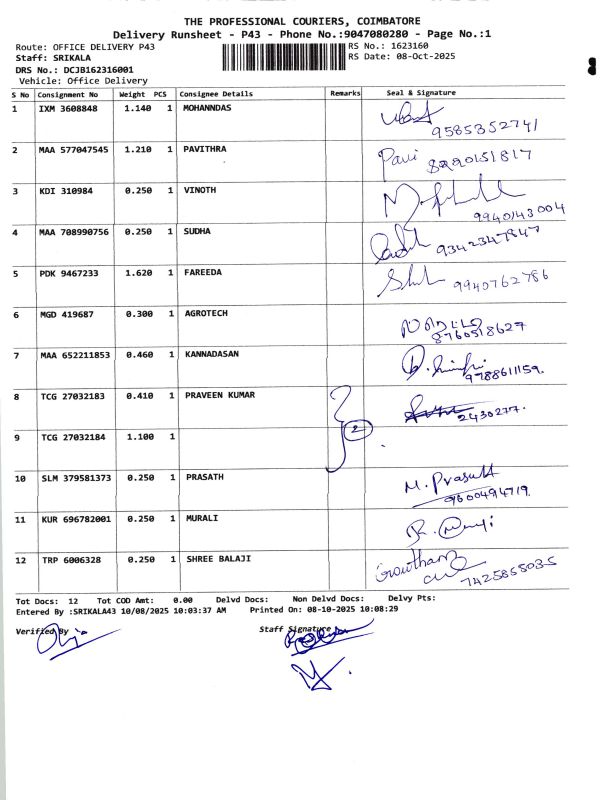 THE PROFESSIONAL COURIERS, COIMBATORE
Delivery Runsheet - P43 - Phone No.:9047080280 - Page No.:1
Route: OFFICE DELIVERY P43 RS No.: 1623160
Staff: SRIKALA RS Date: 08-Oct-2025
DRS No.: DCJB162316001
Vehicle: Office Delivery
S No Consignment No Weight PCS Consignee Details Remarks Seal & Signature
1 IXM 3608848 1.140 1 MOHANNDAS
9585352741
2 MAA 577047545 1.210 1 PAVITHRA Pavi 8220151817
3 KDI 310984 0.250 1 VINOTH
9940143004
4 MAA 708990756 0.250 1 SUDHA
9342347847
5 PDK 9467233 1.620 1 FAREEDA
9940762786
6 MGD 419687 0.300 1 AGROTECH
8760518627
7 MAA 652211853 0.460 1 KANNADASAN
9788611159.
8 TCG 27032183 0.410 1 PRAVEEN KUMAR
2430277.
2
9 TCG 27032184 1.100 1
10 SLM 379581373 0.250 1 PRASATH M. Prasath
9600494719.
11 KUR 696782001 0.250 1 MURALI
12 TRP 6006328 0.250 1 SHREE BALAJI Gowtham
7425855035
Tot Docs: 12 Tot COD Amt: 0.00 Delvd Docs: Non Delvd Docs: Delvy Pts:
Entered By :SRIKALA43 10/08/2025 10:03:37 AM Printed On: 08-10-2025 10:08:29
Verified By Staff Signature